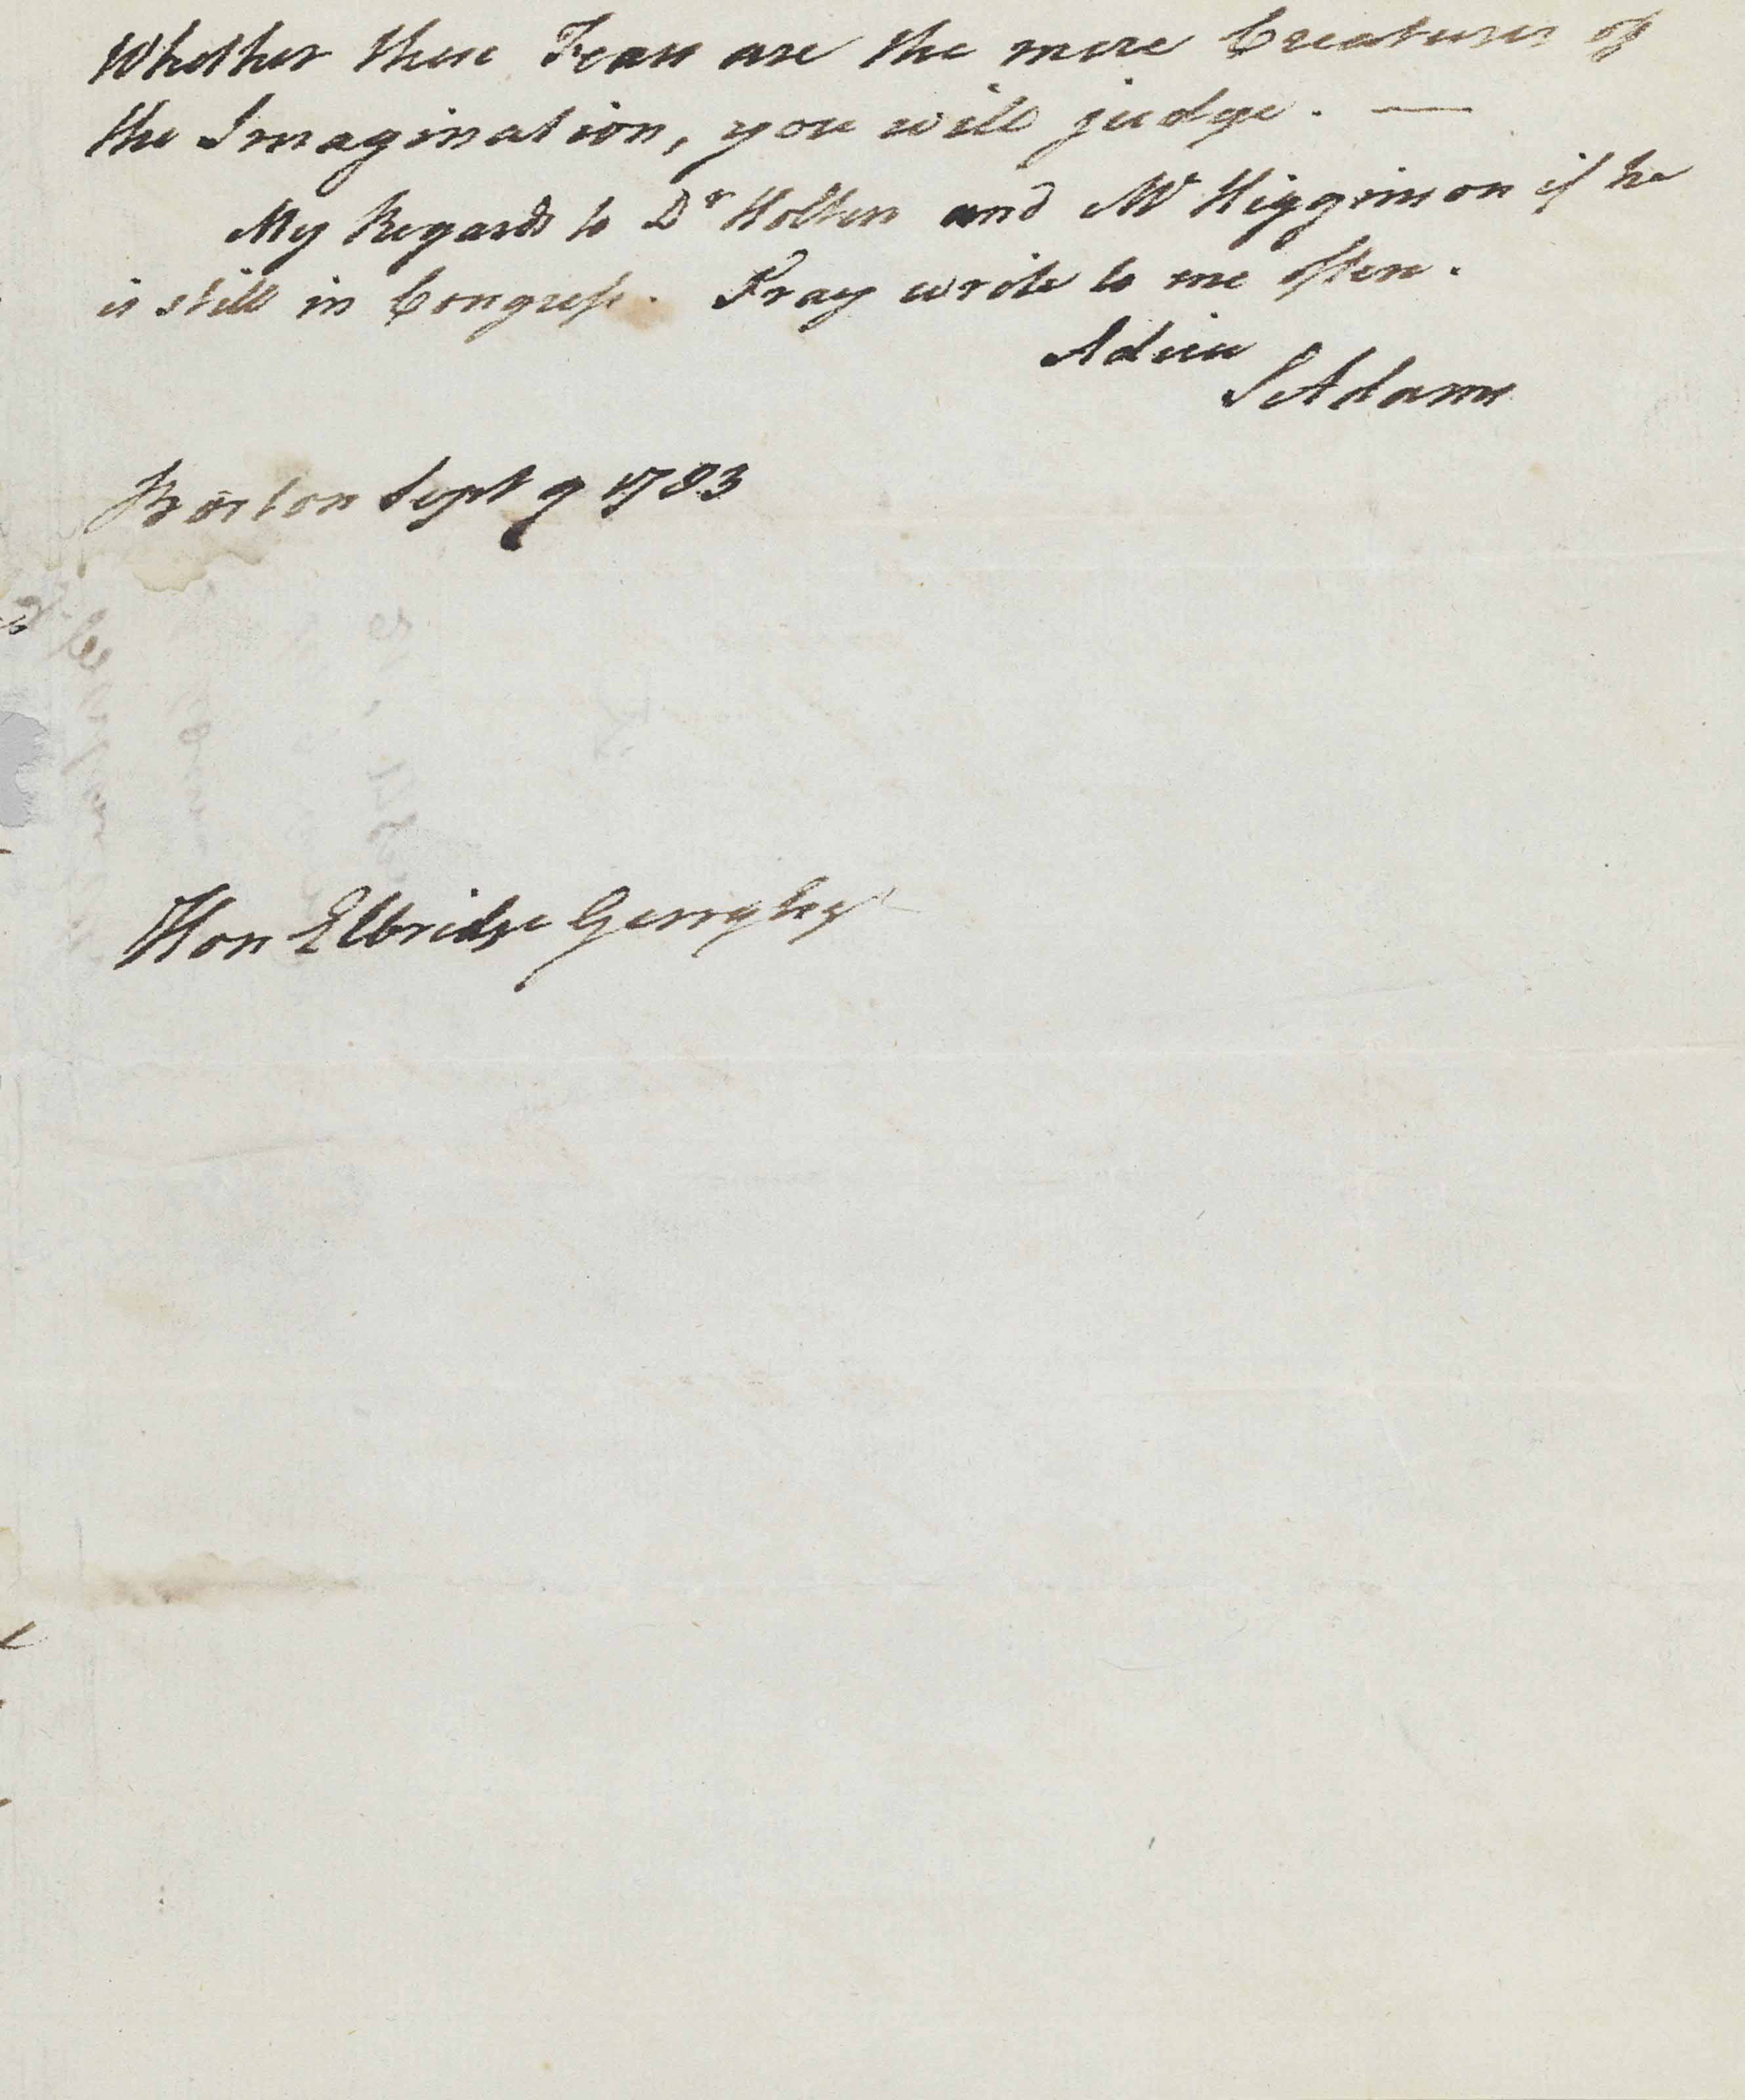 Whether these Fears are the mere Creatures of
the Imagination, you will judge. —
My Regards to Dr Holten and Mr Higginson if he
is still in Congress. Pray write to me often.
Adieu
S Adams
Boston Sept 9 1783
Hon Elbridge Gerry Esqr